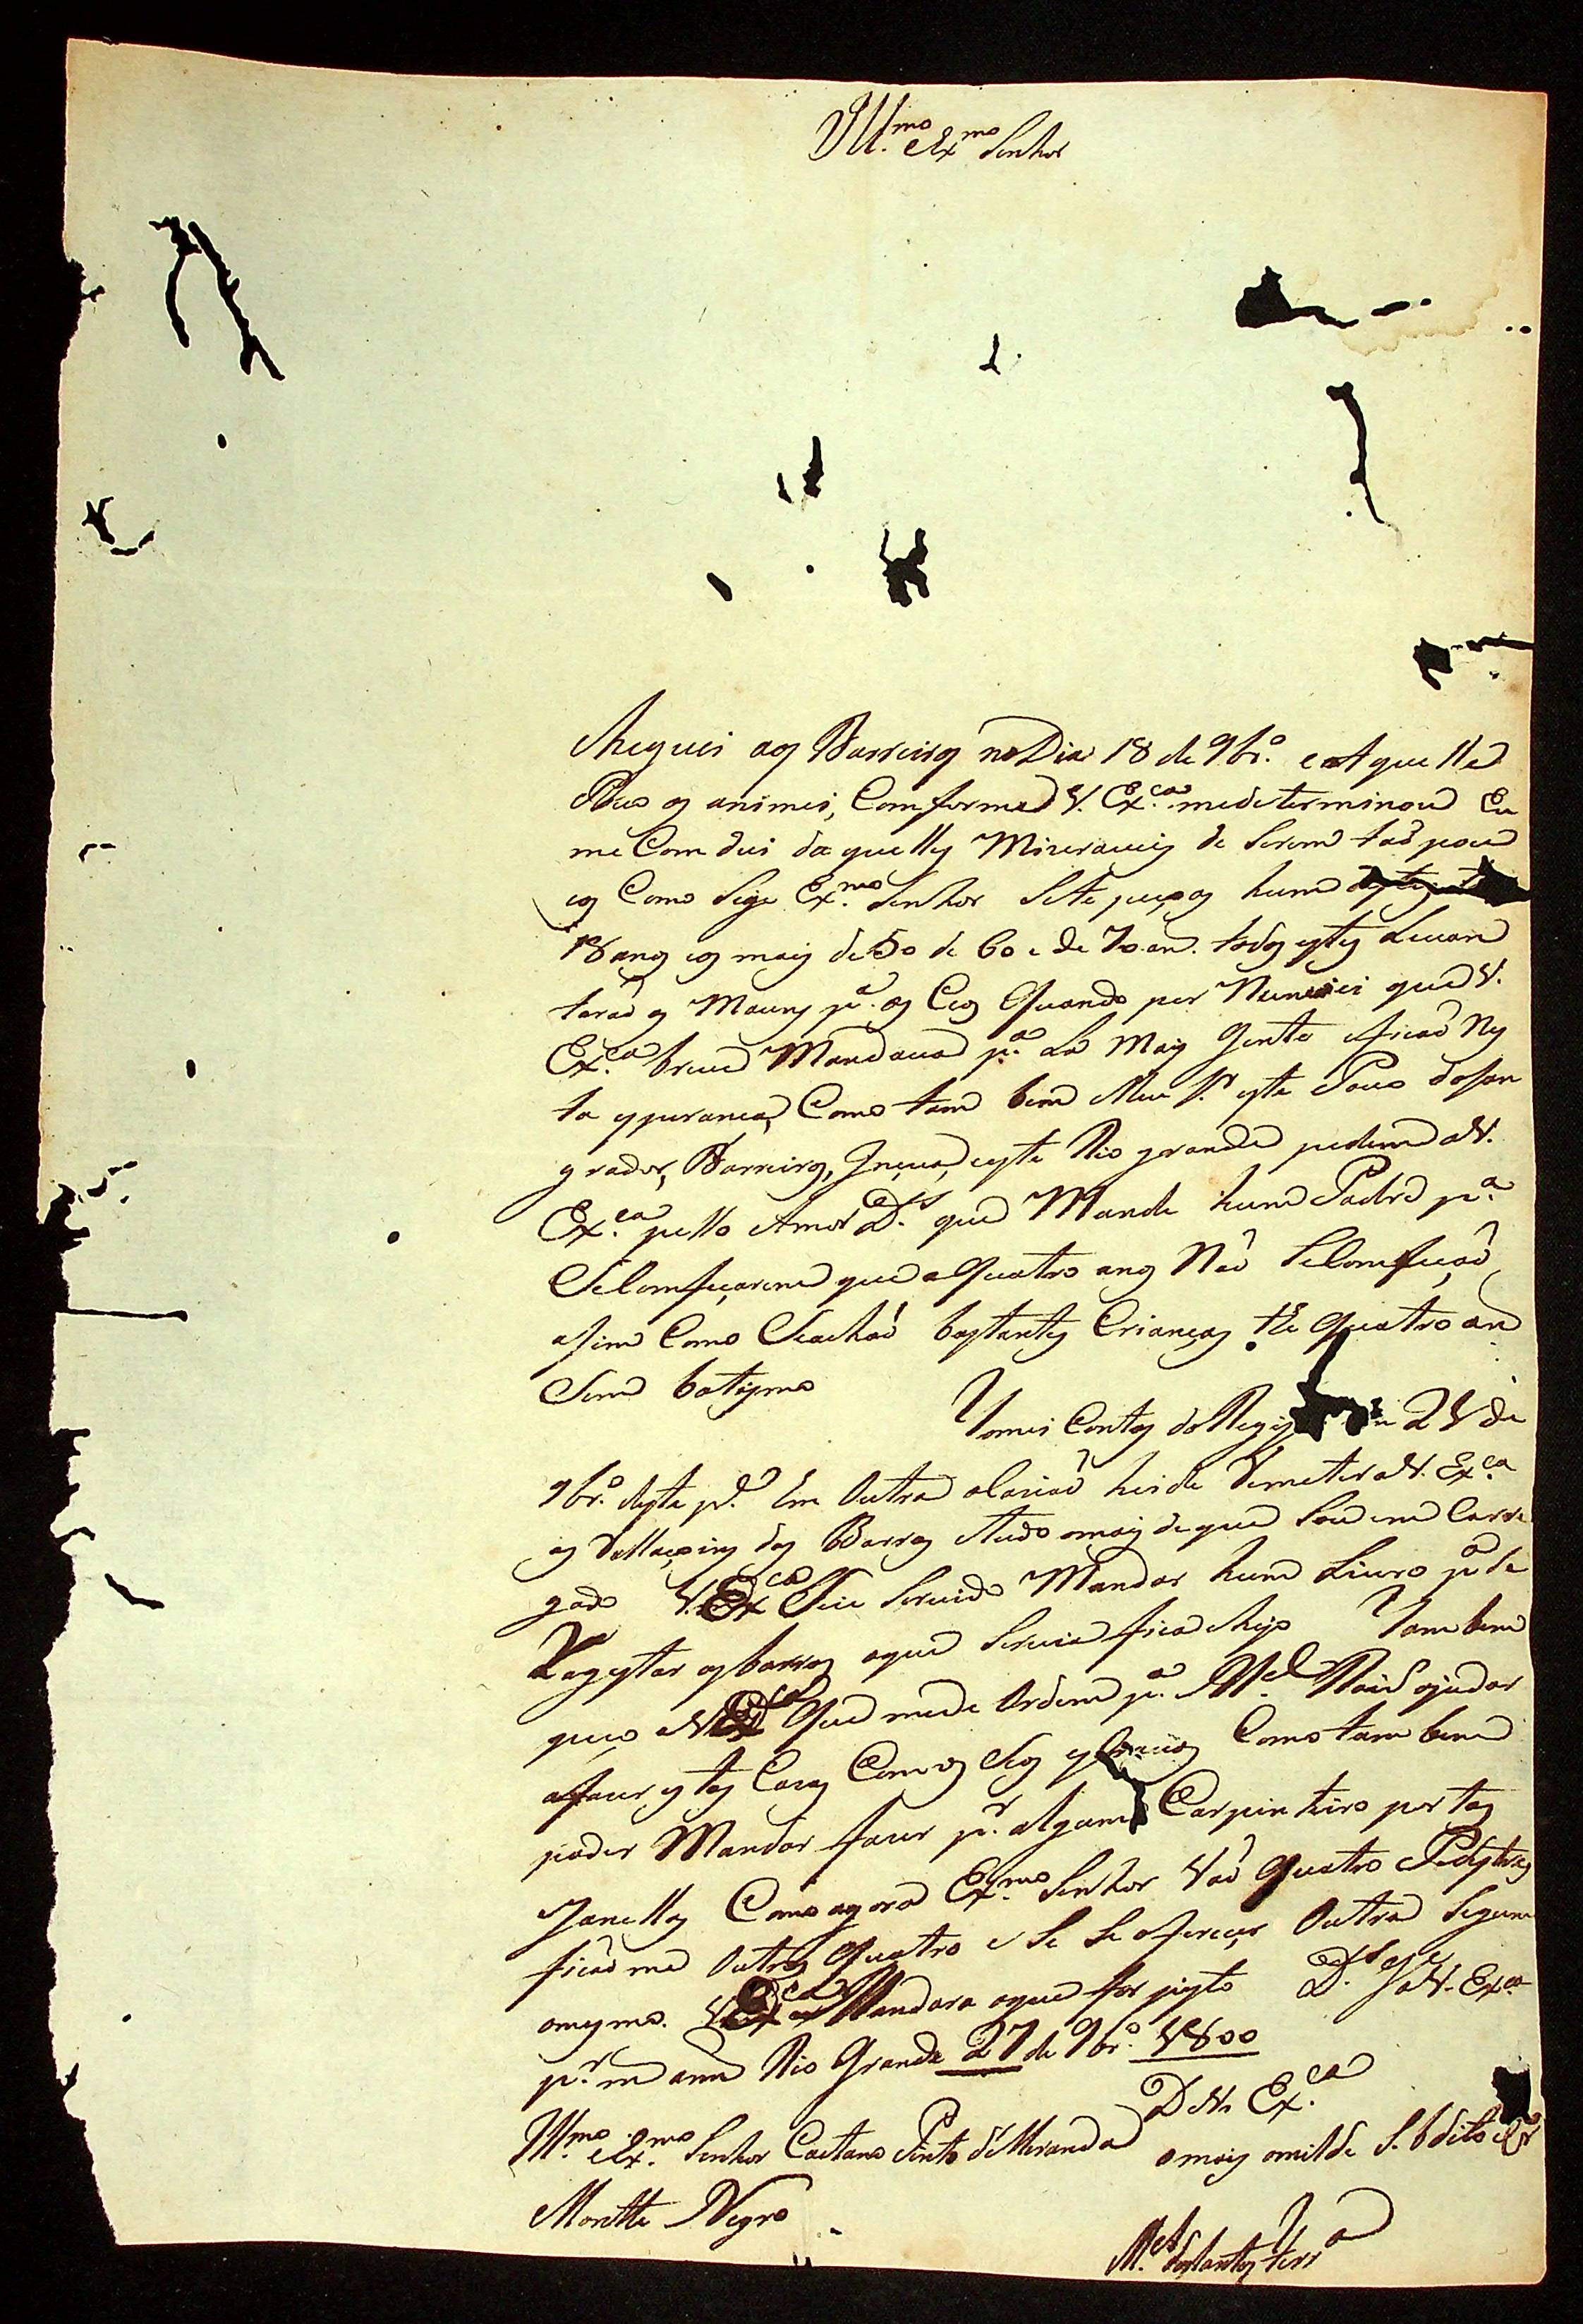 Ill.mo e Ex.mo Senhor
Cheguei aos Barreiros no Dia 18 de 9br.o e aAquelle
Povo os animei, Comforme V. Ex.ca me determinou Eu
me Comdui daquelles Mizeraveis de Serem tão pouc
os Como Sige Ex.mo Senhor Sete peços hum
18 anos os mais de 50 de 60 e de 70 an. todos estes Levan
tarão os Maons p.a os Ceos Quando pernunciei que V.
Ex.ca breve Mandava p.a Lá Mais Gente e ficão Nes
ta esperança, Como tam bem Meu S.r este Povo do San
grador, Barreiros, Inçua, e este Rio grande pedem a V.
Ex.ca pello Amor D.s que Mande hum Padre p.a
Se Comfeçarem que a Quatro anos Não Se Comfeção
asim Como Se achão bastantes Crianças the Quatro an
Sem batismo
Tomei Contas do Regis 24 de
9br.o deste p.e Em Outra olaciaõ heide Remeter a V. Ex.ca
as Rellaçoins dos Barros e tudo omais de que Sou em Carre
gado V. Ex.ca Seie Servido Mandar hum Livro p.a Se
Ragestar os barros o que Servia fica cheio Tambem
peço a V. Ex.ca Que me de Ordem p.a M.el Roiz ajudar
afazer estas Cazas Com os Seos escravos Como tam bem
poder Mandar fazer p.r algum Carpinteiro portas
Janellas Como agora Ex.mo Senhor Vão Quatro Pedestres
ficão me Outros Quatro e Se Se ofereçer Outra Segun
omesmo. V. Ex.ca Mandara oque for justo D.s g.e a V. Ex.ca
p.r m ann Rio Grande 27 de 9br.o 1800
De V. Ex.ca
Ill.mo e Ex.mo Senhor Caetano Pinto de Miranda omais omilde Subdito
Montte Negro
M.el dos Santos Ferr.a